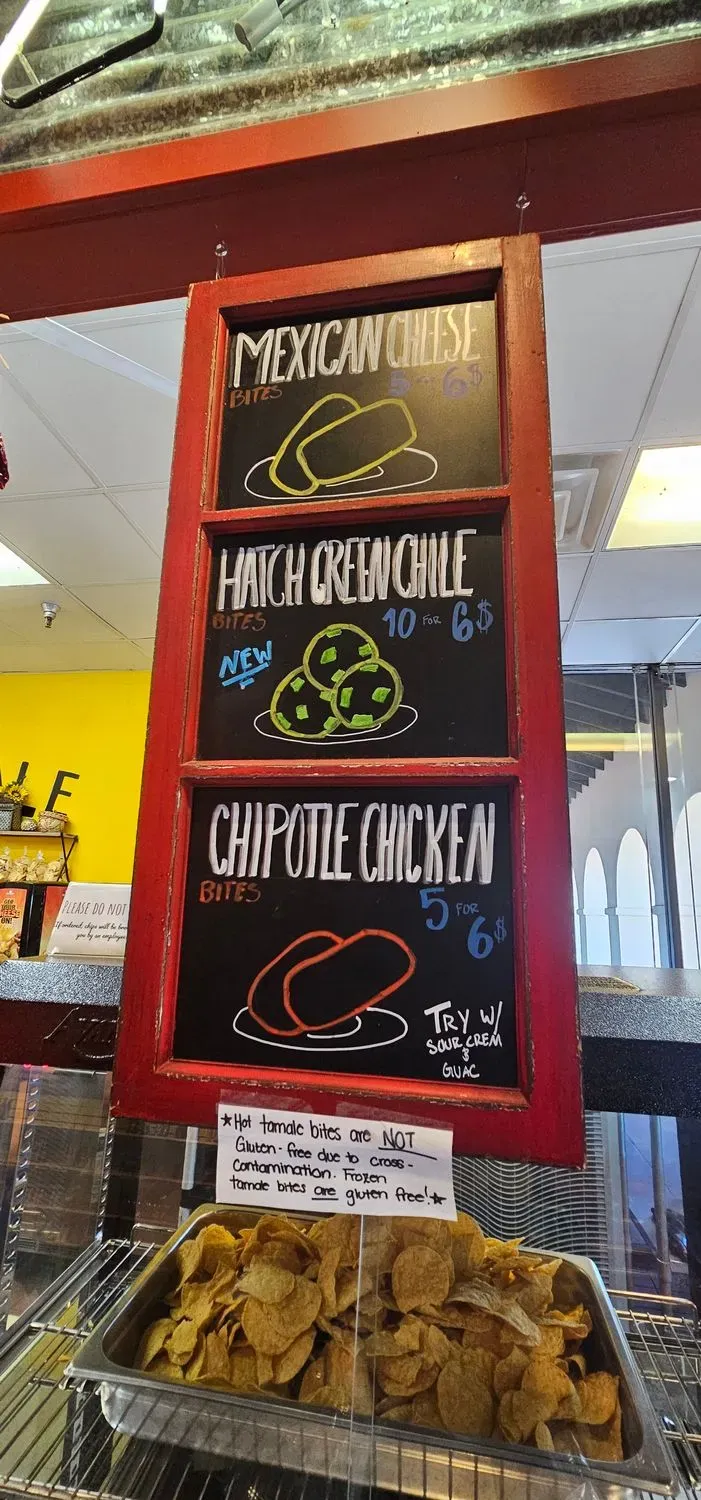 MEXICAN CHEESE
BITES
5 FOR 6$
HATCH GREEN CHILE
BITES
10 FOR 6$
NEW
CHIPOTLE CHICKEN
BITES
5 FOR 6$
TRY W/
SOUR CREM
&
GUAC
PLEASE DO NOT
If ordered, chips will be
you by an employee
★Hot tamale bites are NOT
Gluten-free due to cross-
contamination. Frozen
tamale bites are gluten free!★